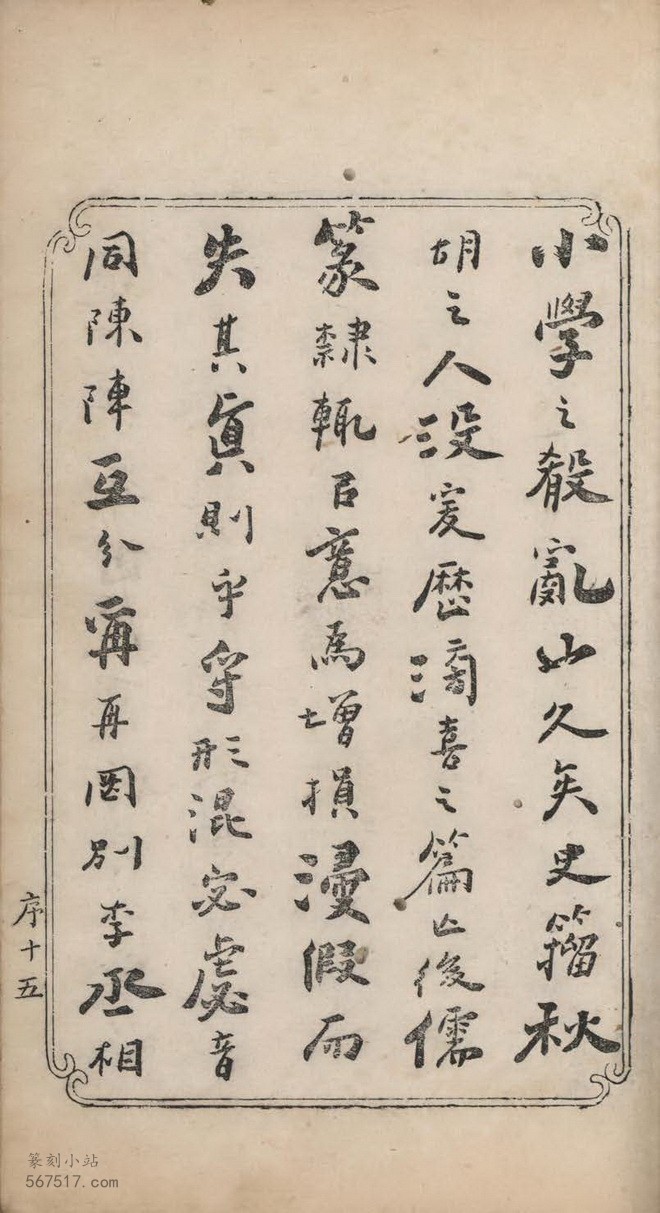 小學之殽亂山久矣史籀秋
胡之人没爰歷滂喜之篇亾後儒
篆隸輒㠯意爲增損漫假而
失其眞則乎寽形混宓虙音
同陳陣互分爯再罔別李丞相
序十五
篆刻小站
567517.com